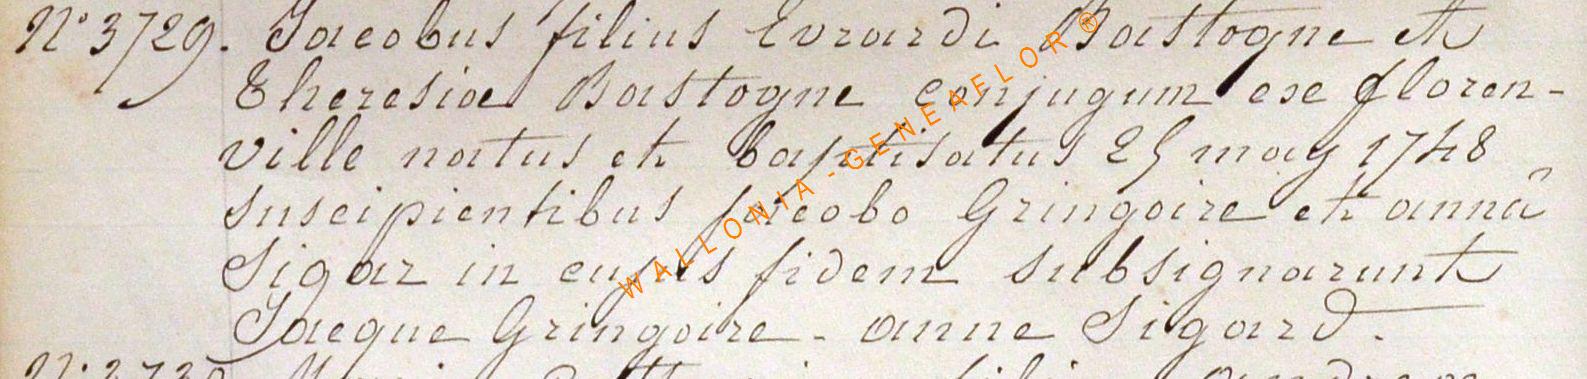 N° 3729. Jacobus filius Evrardi Bastogne et
Theresiæ Bastogne conjugum ex floren-
ville natus et baptisatus 25 may 1748
suscipientibus jacobo Gringoire et annâ
Sigar in cujus fidem subsignarunt
Jacque Gringoire - anne Sigard.
WALLONIA-GENEAFLOR®